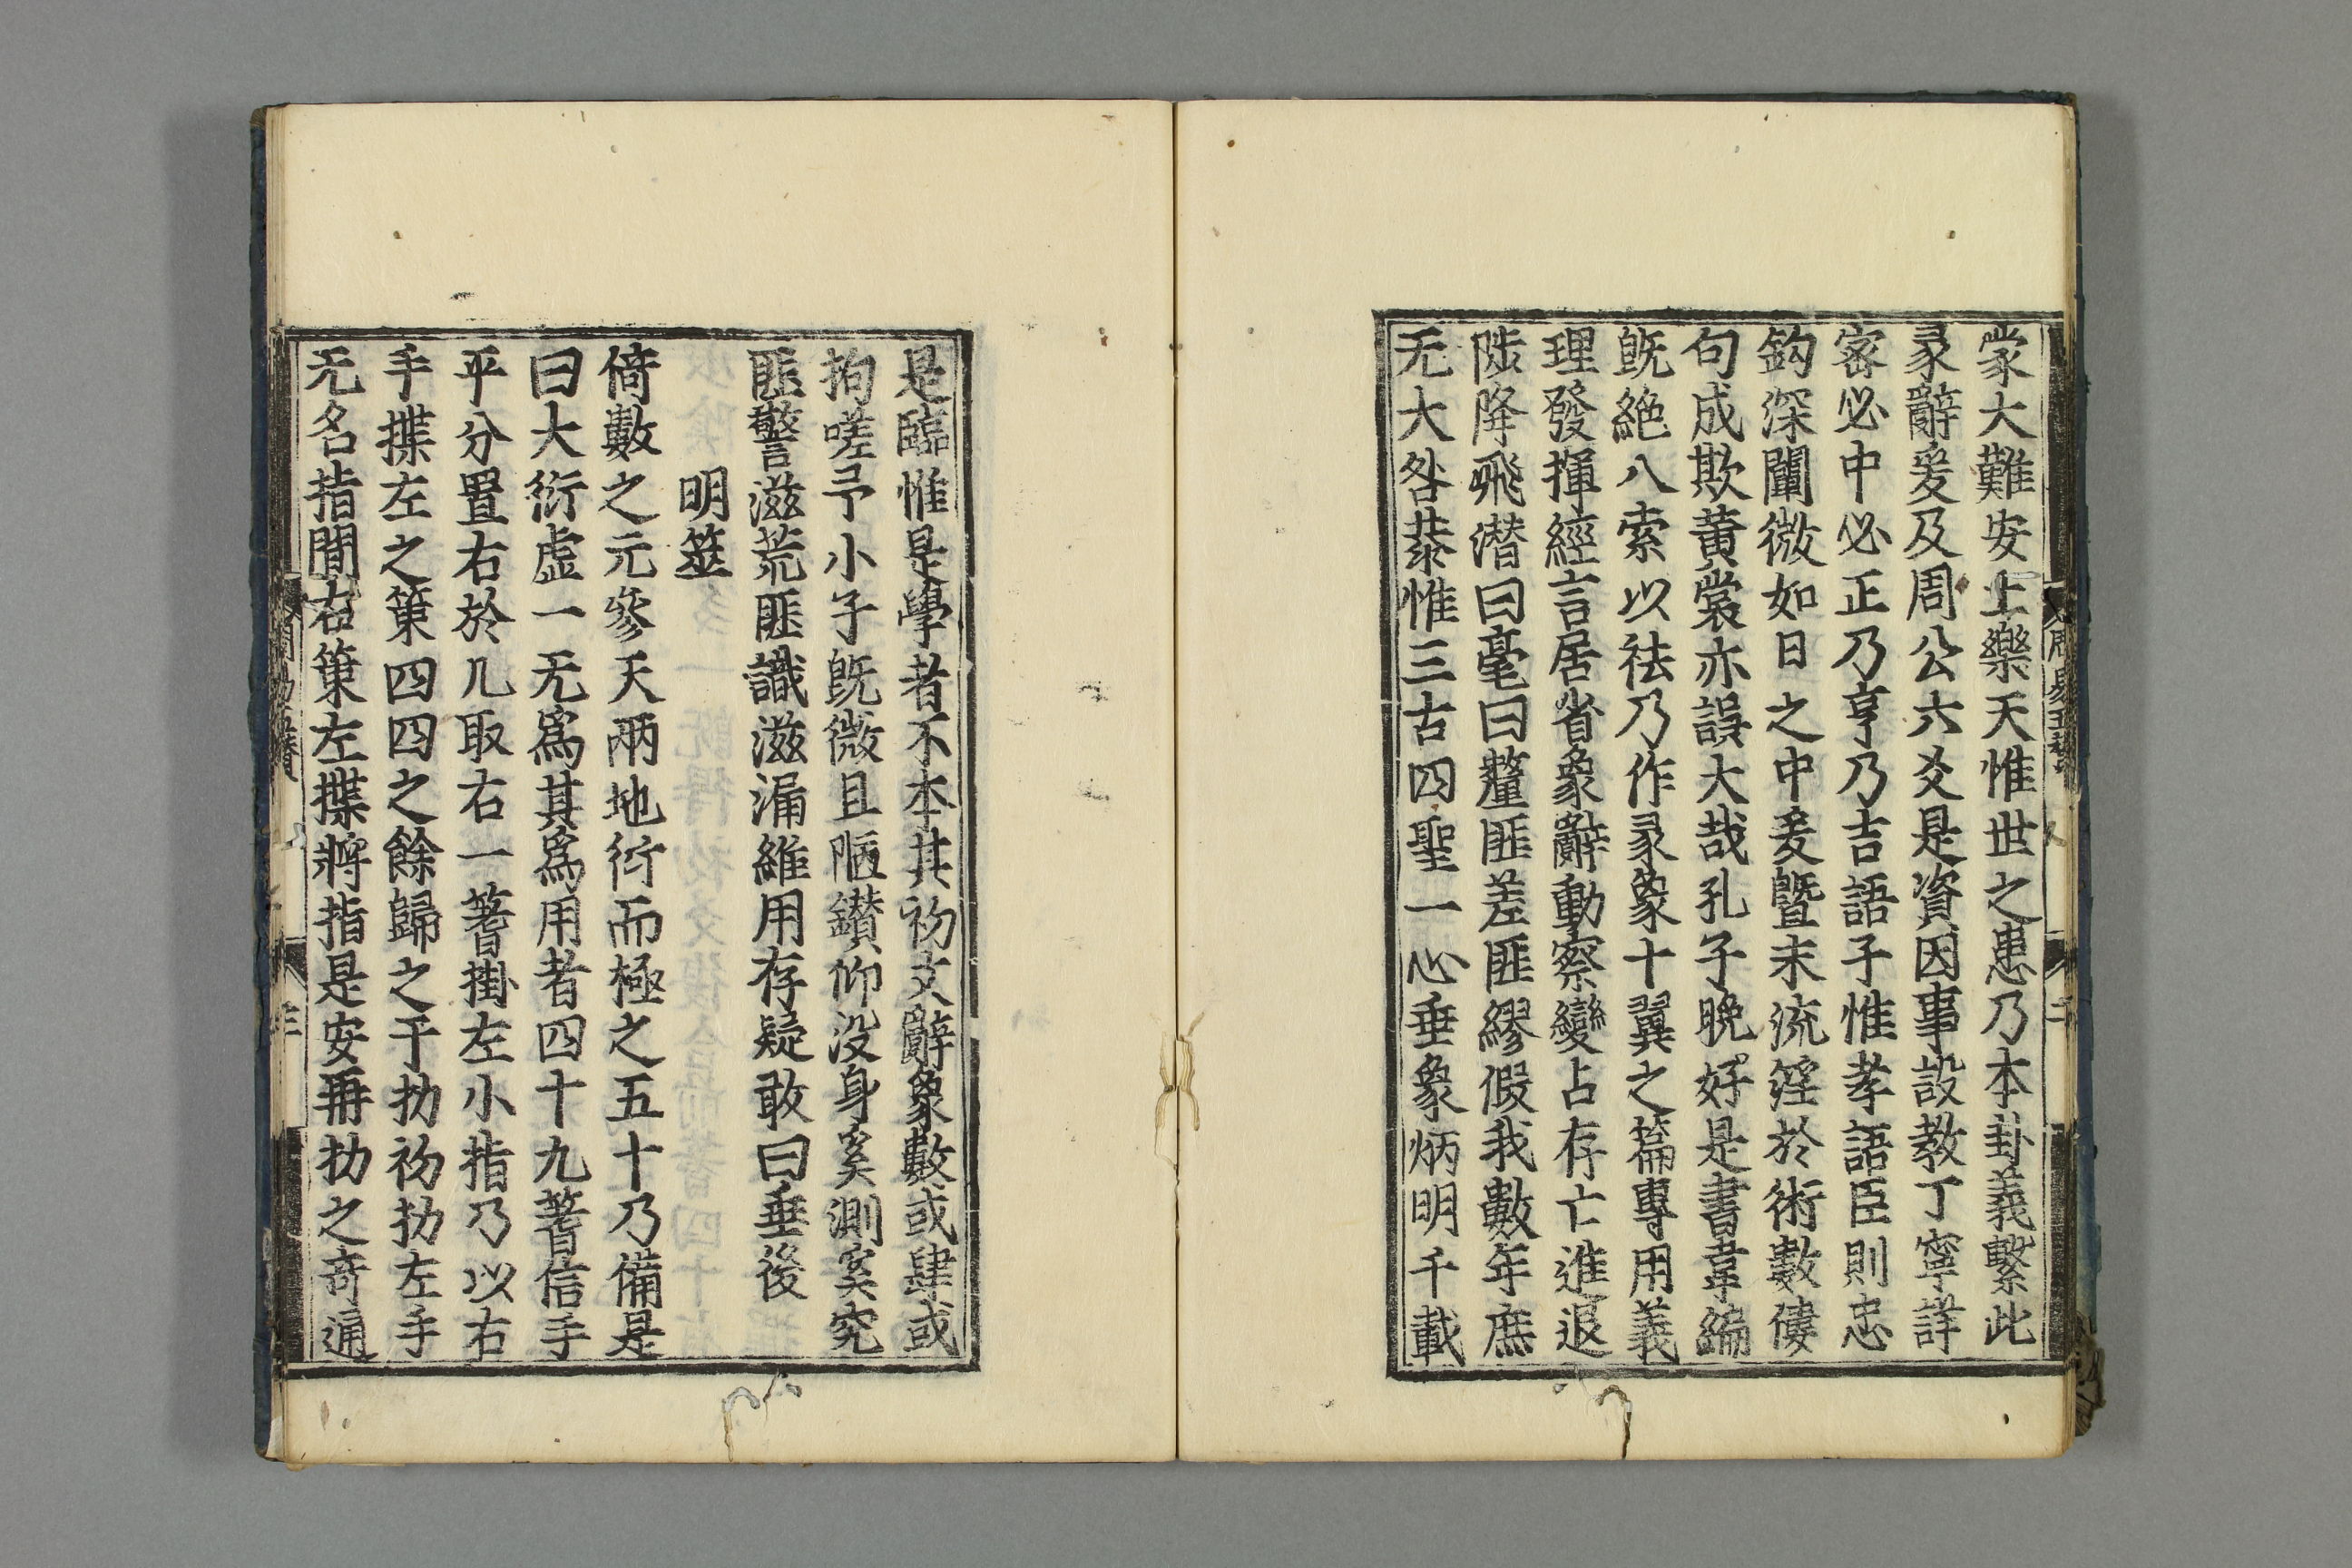 蒙大難安土樂天惟世之患乃本卦義繫此
彖辭爰及周公六爻是資因事設教丁寧詳
宻必中必正乃亨乃吉語子惟孝語臣則忠
鈎深闡微如日之中爰曁末流淫於術數僂
句成欺黄裳亦誤大哉孔子晚好是書韋編
旣絶八索以祛乃作彖象十翼之篇專用義
理發揮經言居省象辭動察變占存亡進退
陟降飛潜曰毫曰釐匪差匪繆假我數年庶
无大咎恭惟三古四聖一心垂象炳明千載
是臨惟是學者不本其初文辭象數或肆或
拘嗟予小子旣微且陋鑚仰没身奚測奚究
匪警滋荒匪識滋漏維用存疑敢曰垂後
明筮
倚數之元參天兩地衍而極之五十乃備是
曰大衍虚一无爲其爲用者四十九蓍信手
平分置右於几取右一蓍掛左小指乃以右
手揲左之策四四之餘歸之于扐初扐左手
无名指間右策左揲將指是安再扐之竒通